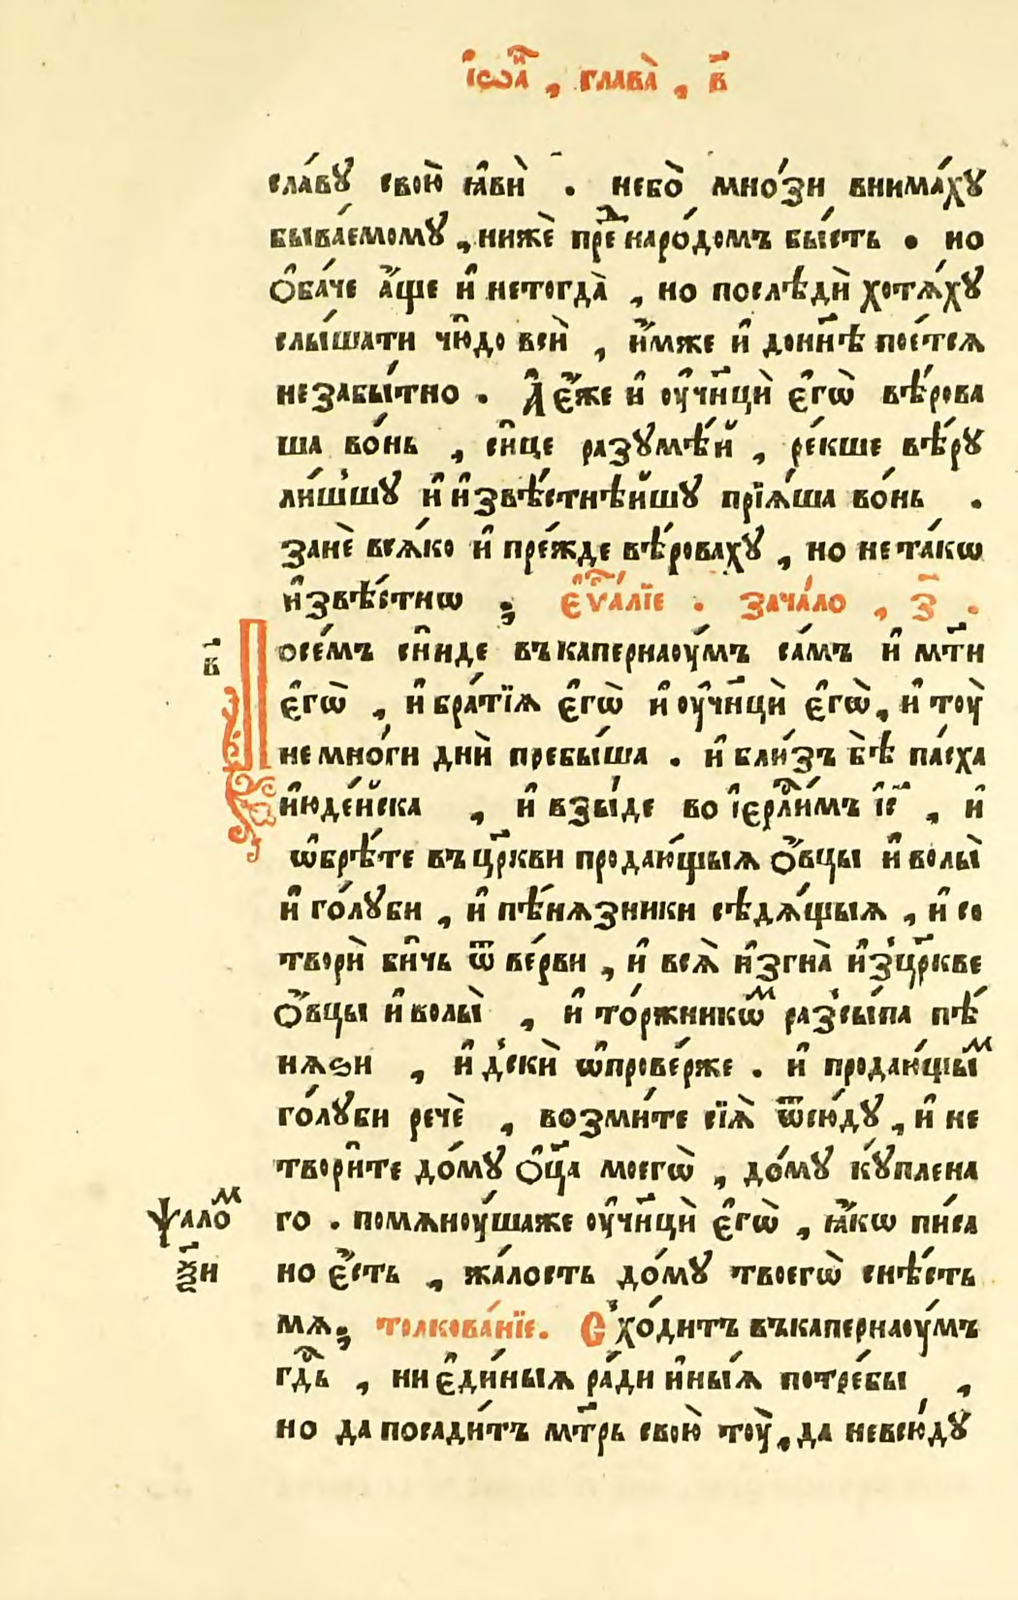 і҆ѡа́н , глава̀ , в҃
сла́вꙋ свою̀ ꙗ҆вѝ . небо̀ мно́зи внима́хꙋ
быва́емомꙋ , нижѐ пре́дⷣ наро́домъ бы́сть . но
ѻ҆ба́че а҆́ще и҆ нетогда̀ , но послѣдѝ хотѧ́хꙋ
слы́шати чю̑до всѝ , и҆́мже и҆ дони҃нѣ пое́тсѧ
незабы́тно . А҆ є҆́же и҆ оу҆чн҃цѝ є҆гѡ̀ вѣ́рова
ша во́нь , си̑це разꙋмѣ́й , ре́кше вѣ́рꙋ
ли́шшꙋ и҆ и҆звѣ́стнѣйшꙋ прїѧ́ша во́нь .
занѐ всѧ́ко и҆ пре́жде вѣ́ровахꙋ , но не та́кѡ
и҆звѣ́стнѡ ; є҆ѵⷢ҇а́лїе . зача́ло , з҃ .
в҃
Посе́мъ сни̑де въкапернаоу́мъ са́мъ и҆ мт҃и
є҆гѡ̀ , и҆ бра́тїѧ є҆гѡ̀ и҆ оу҆чн҃цѝ є҆гѡ̀ , и҆ тоу̀
не мно́ги днѝ пребы́ша . и҆ бли́зъ бѣ̀ па́сха
и҆юде́йска , и҆ взы́де во і҆ерⷭ҇ли́мъ і҆с҃ , и҆
ѡ҆брѣ́те въ цр҃кви продаю́щыѧ ѻ҆́вцы и҆ волы̀
и҆ го́лꙋби , и҆ пѣ́нѧзники сѣдѧ́щыѧ , и҆ со
творѝ би́чь ѿ ве́рви , и҆ всѧ̀ и҆згна̀ и҆зцр҃кве
ѻ҆́вцы и҆ волы̀ , и҆ то́ржникѡⷨ разсы́па пѣ́
нѧѕи , и҆ дскѝ ѡ҆прове́рже . и҆ продаю́щыⷨ
го́лꙋби речѐ , возми́те сїѧ̀ ѿсю́дꙋ , и҆ не
твори́те до́мꙋ ѻ҆ц҃а моегѡ̀ , до́мꙋ кꙋ́плена
ѱало́ⷨ
го . помѧноу́шаже оу҆чн҃цѝ є҆гѡ̀ , ꙗ҆́кѡ пи́са
ѯ҃и
но є҆́сть , жа́лость до́мꙋ твоегѡ̀ снѣ́сть
мѧ ; толкова́нїе . Схо́дитъ въкапернаоу́мъ
гдⷭ҇ь , ни є҆ди́ныѧ ра́ди и҆ны́ѧ потре́бы ,
но да посади́тъ мт҃рь свою̀ тоу̀ , да невсю́дꙋ